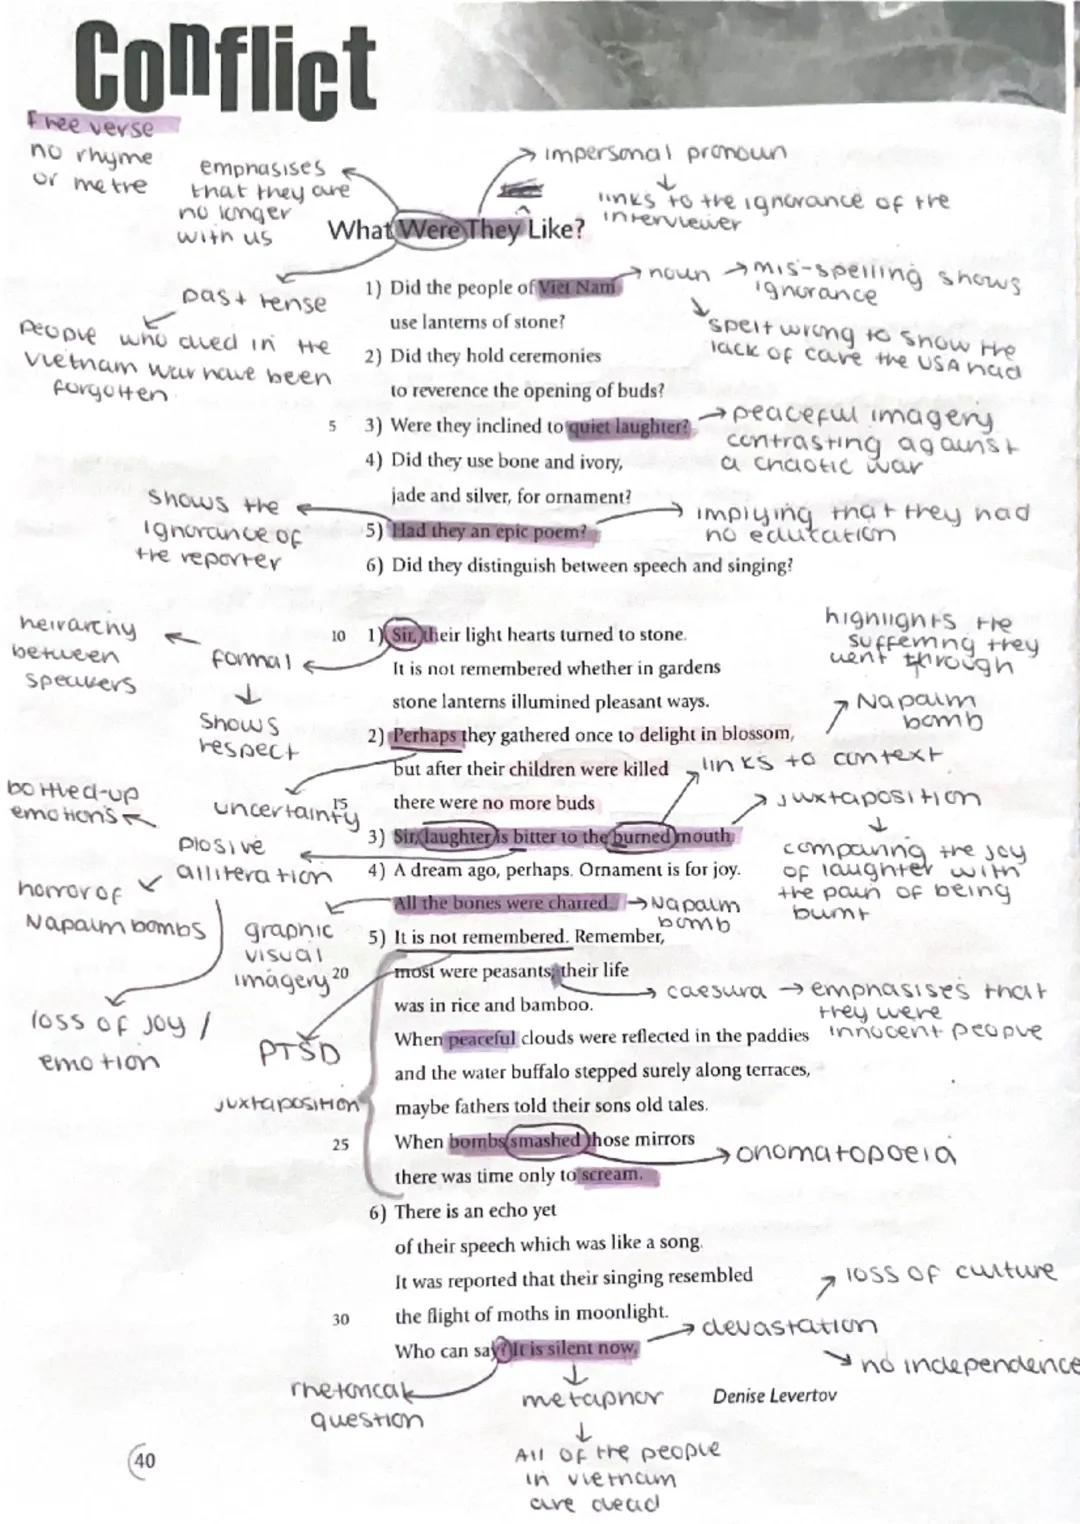 Conflict
Free verse
no rhyme
or metre
emphasises
that they are
no longer
with us
impersonal pronoun
links to the ignorance of the
interviewer
What Were They Like?
past tense
People who died in the
Vietnam war have been
forgotten
1) Did the people of Viet Nam
use lanterns of stone?
noun
mis-spelling shows
ignorance
spelt wrong to show the
lack of care the USA had
2) Did they hold ceremonies
to reverence the opening of buds?
5 3) Were they inclined to quiet laughter?
peaceful imagery
contrasting against
a chaotic war
4) Did they use bone and ivory,
jade and silver, for ornament?
shows the
ignorance of
the reporter
5) Had they an epic poem?
implying that they had
no education
6) Did they distinguish between speech and singing?
heirarchy
between
speakers
formal
shows
respect
10 1) Sir, their light hearts turned to stone.
It is not remembered whether in gardens
stone lanterns illumined pleasant ways.
highlights the
suffering they
went through
2) Perhaps they gathered once to delight in blossom,
but after their children were killed
15 there were no more buds
uncertainty
Napalm
bomb
links to context
3) Sir, laughter is bitter to the burned mouth.
juxtaposition
comparing the joy
of laughter with
the pain of being
burnt
bottled-up
emotions
plosive
alliteration
horror of
Napalm bombs
loss of joy /
emotion
4) A dream ago, perhaps. Ornament is for joy.
All the bones were charred.
Napalm
bomb
graphic
visual
imagery
5) It is not remembered. Remember,
20 most were peasants; their life
was in rice and bamboo.
caesura
emphasises that
they were
innocent people
PTSD
When peaceful clouds were reflected in the paddies
and the water buffalo stepped surely along terraces,
juxtaposition
maybe fathers told their sons old tales.
25 When bombs smashed those mirrors
onomatopoeia
there was time only to scream.
6) There is an echo yet
of their speech which was like a song.
It was reported that their singing resembled
30 the flight of moths in moonlight.
Who can say? It is silent now.
devastation
loss of culture
no independence
rhetorical
question
metaphor
All of the people
in vietnam
are dead
Denise Levertov
40